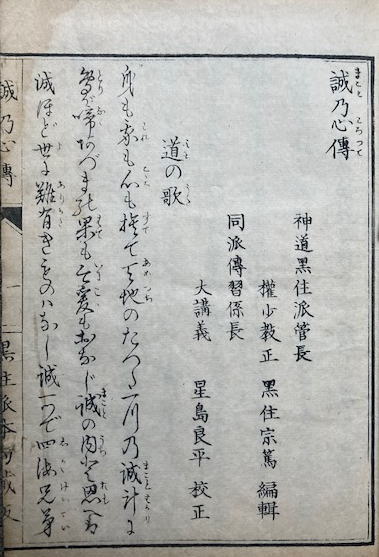 誠乃心傳
神道黒住派管長
權少教正 黒住宗篤 編輯
同派傳習係長
大講義 星島良平 校正
道の歌
身も我も心も捨て天地のたつた一川乃誠計に
啼あづまの果も爰もおなじ誠の内と思へば
誠ほど世に難有きものハなし誠一つで四海兄弟
誠乃心傳 一 黒住派本局蔵版